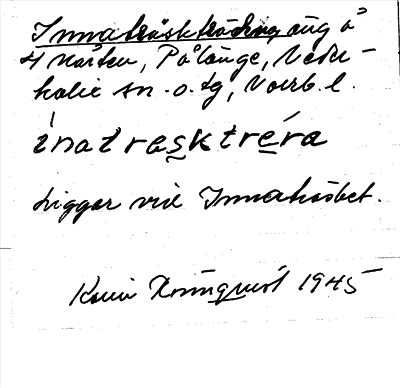 Innaträskträdning äng å
4 Mården, Pålänge, Neder-
kalix sn. o. tg, Norrb. l.
ìnatrasktréra
Ligger vid Innaträsket.
Karin Rönnqvist 1945